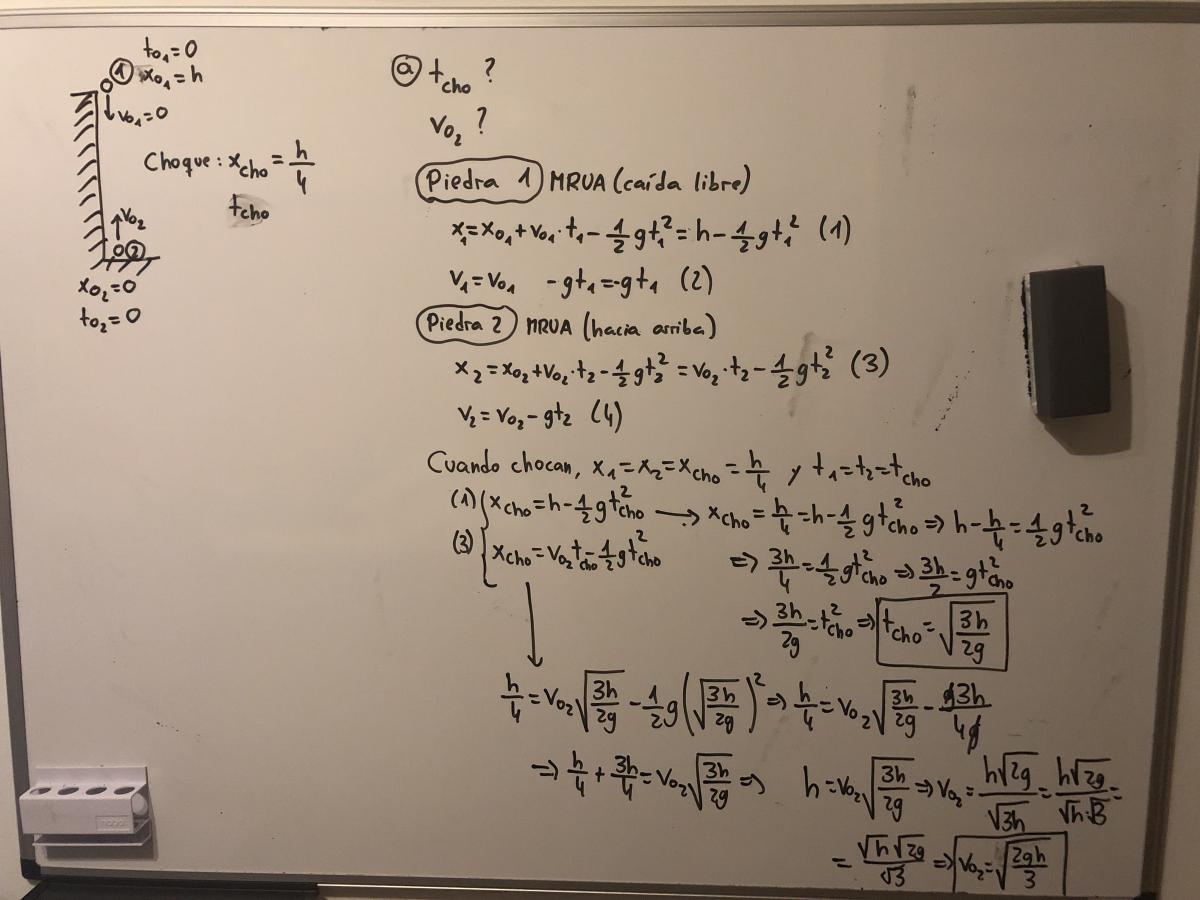 t₀₁=0
① x₀₁=h
v₀₁=0
Choque: x_cho = h/4
t_cho
v₀₂
②
x₀₂=0
t₀₂=0
ⓐ t_cho ?
v₀₂ ?
Piedra 1 MRUA (caída libre)
x₁=x₀₁+v₀₁·t₁-1/2 gt₁²=h-1/2 gt₁² (1)
v₁=v₀₁ -gt₁=-gt₁ (2)
Piedra 2 MRUA (hacia arriba)
x₂=x₀₂+v₀₂·t₂-1/2 gt₂²=v₀₂·t₂-1/2 gt₂² (3)
v₂=v₀₂-gt₂ (4)
Cuando chocan, x₁=x₂=x_cho=h/4 y t₁=t₂=t_cho
(1) { x_cho=h-1/2 gt²_cho → x_cho=h/4=h-1/2 gt²_cho ⇒ h-h/4=1/2 gt²_cho
(3) { x_cho=v₀₂t_cho-1/2 gt²_cho ⇒ 3h/4=1/2 gt²_cho ⇒ 3h/2=gt²_cho
⇒ 3h/2g=t²_cho ⇒ t_cho=√(3h/2g)
h/4=v₀₂√(3h/2g)-1/2 g(√(3h/2g))² ⇒ h/4=v₀₂√(3h/2g)-g3h/4g
⇒ h/4+3h/4=v₀₂√(3h/2g) ⇒ h=v₀₂√(3h/2g) ⇒ v₀₂=h√2g/√3h=h√2g/√h·√3=
=√h√2g/√3 ⇒ v₀₂=√(2gh/3)